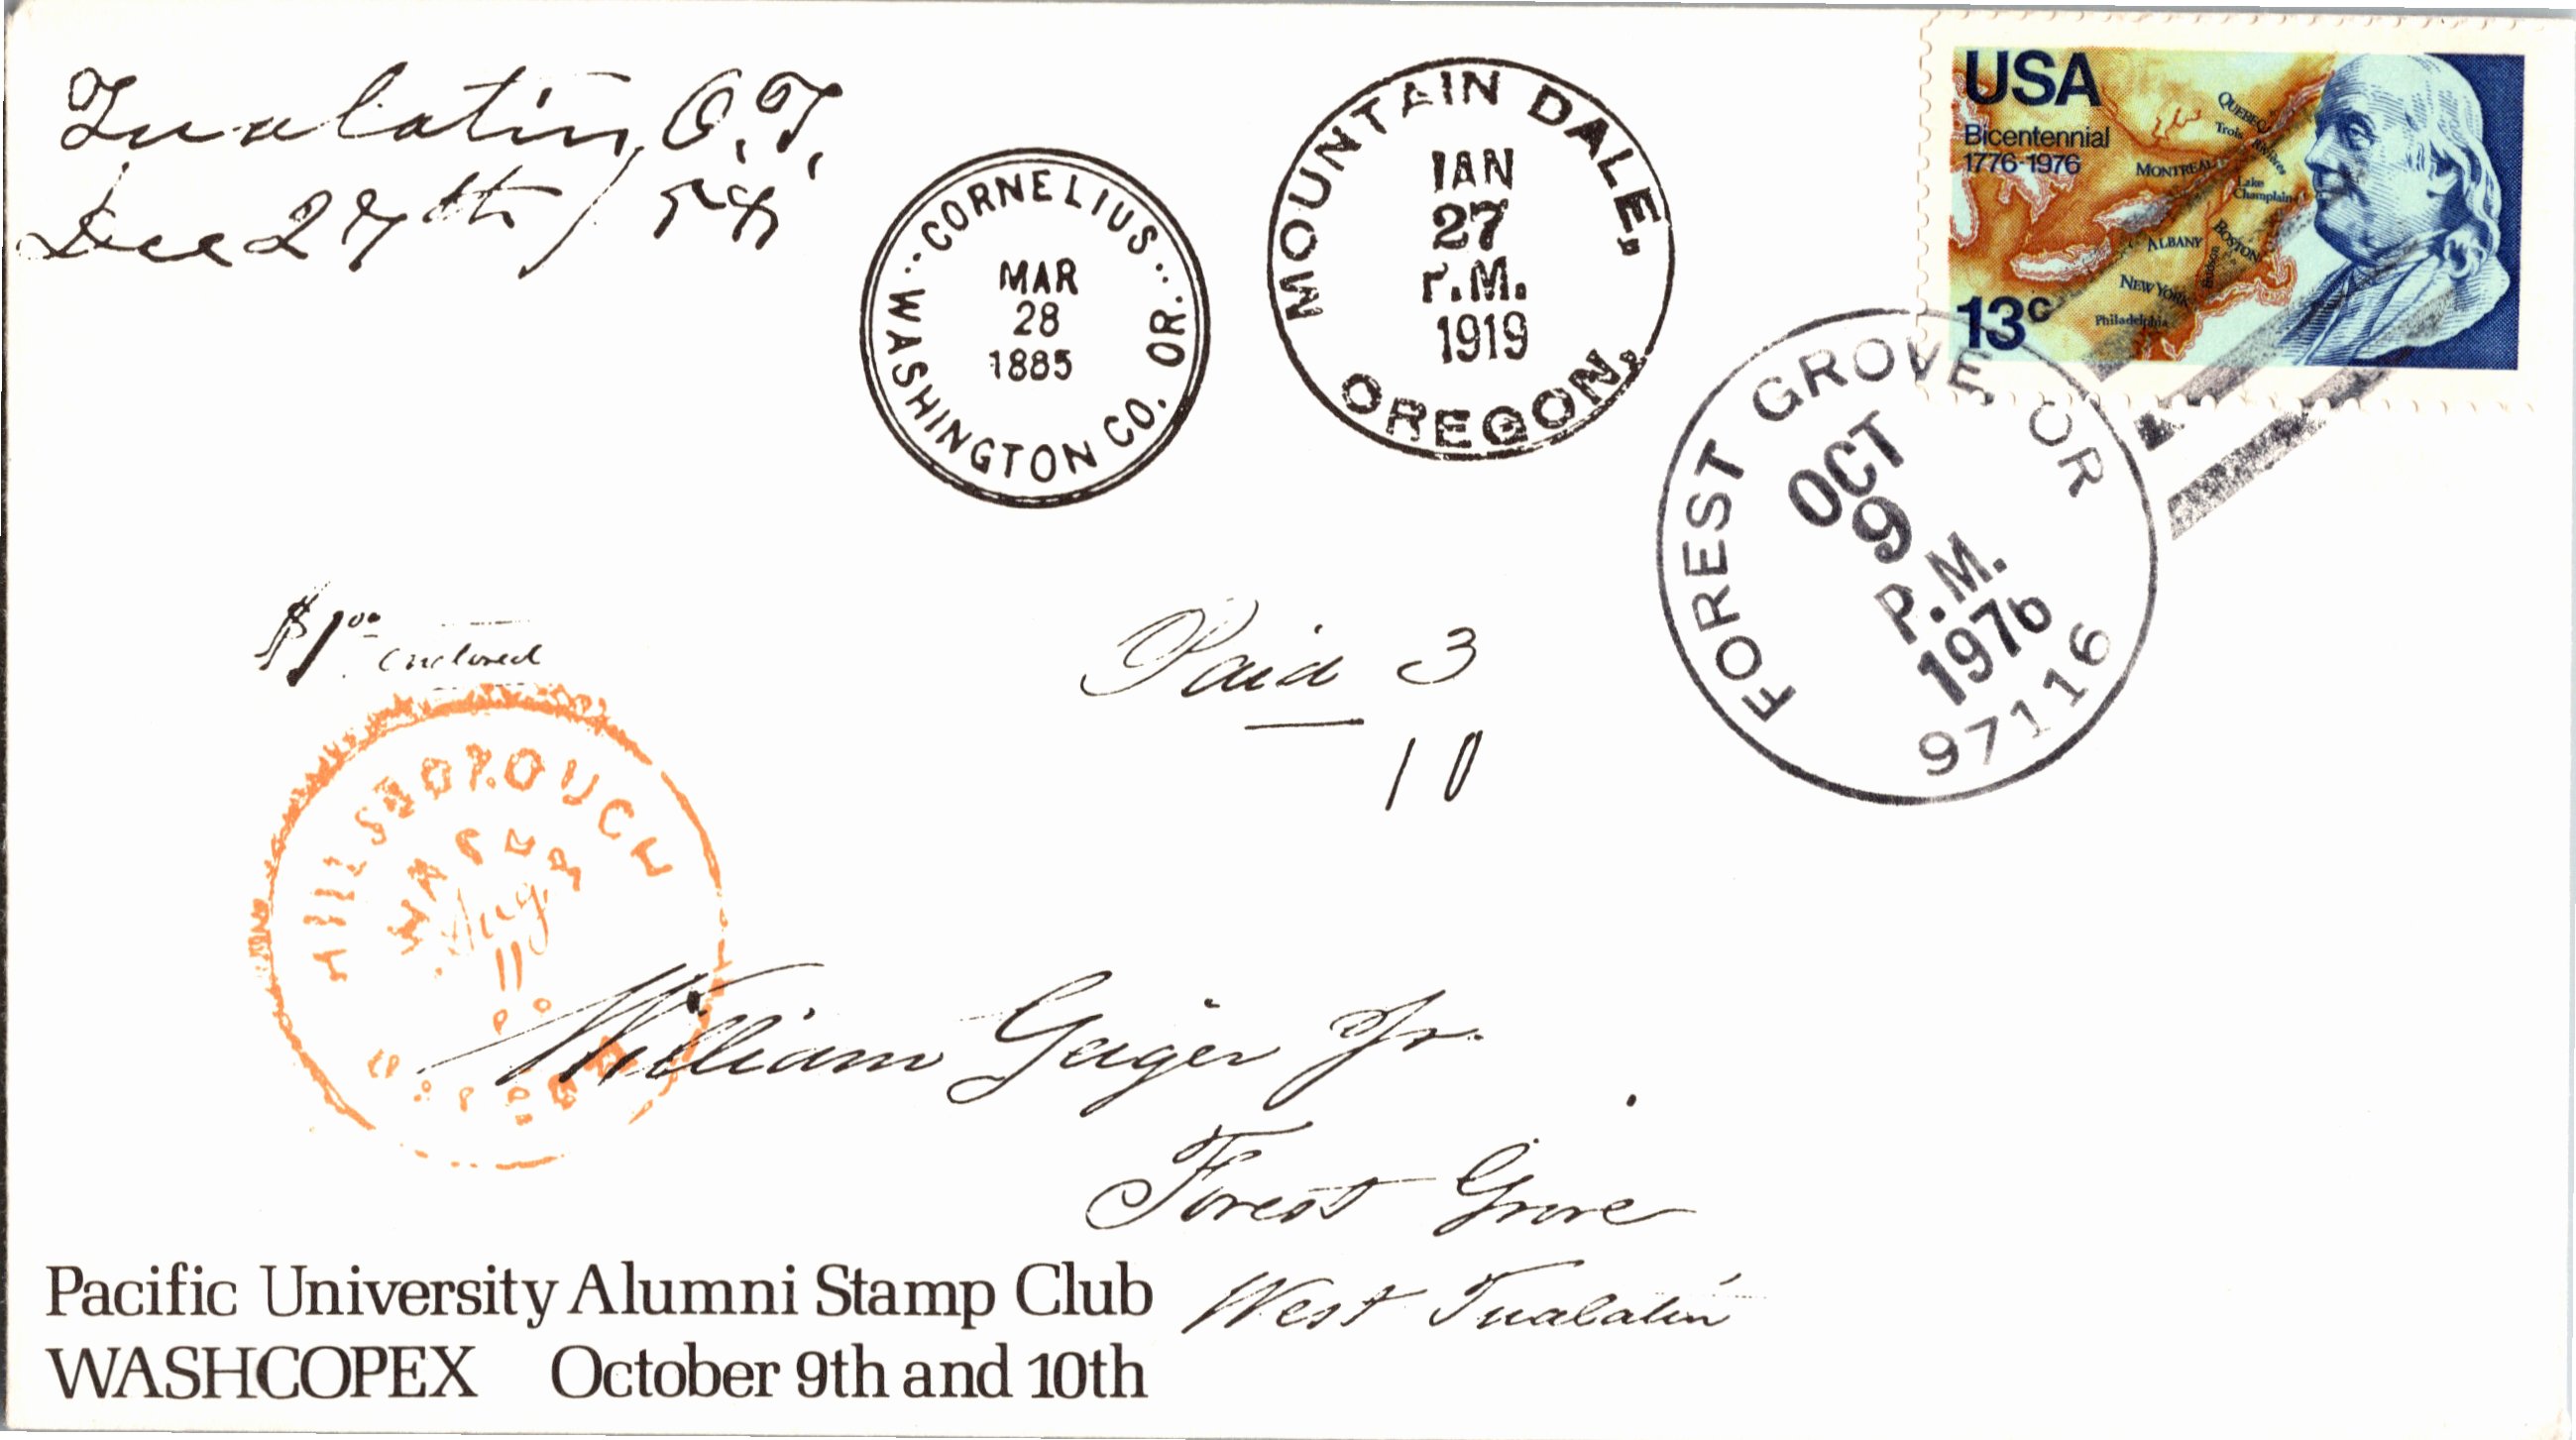 Tualatin, O.T.
Dec 27th /
CORNELIUS
MAR
28
1885
WASHINGTON CO. OR.
MOUNTAIN DALE,
JAN
27
P.M.
1919
OREGON.
USA
Bicentennial
1776-1976
QUEBEC
Trois Rivières
MONTREAL
Lake
Champlain
ALBANY
BOSTON
Hudson
NEW YORK
Philadelphia
13c
FOREST GROVE OR
OCT
9
P.M.
1976
97116
$1.00 enclosed
Paid 3
10
HILLSBOROUGH
Aug
11
William Geiger Jr.
Forest Grove
West Tualatin
Pacific University Alumni Stamp Club
WASHCOPEX October 9th and 10th